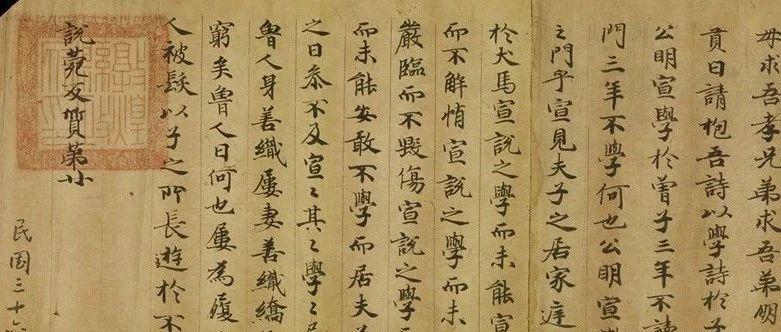 毋求吾孝兄弟求吾弟朋
貢曰請抱吾詩以學詩於子
公明宣學於曾子三年不讀
門三年不學何也公明宣
之門乎宣見夫子之居家庭
於犬馬宣說之學而未能宣
而不解惰宣說之學而未
嚴臨而不毀傷宣說之學而
而未能安敢不學而居夫子
之曰參不及宣〻其〻學〻已
魯人身善織屨妻善織縞
窮矣魯人曰何也屨為履
人被髮以子之所長遊於不
說苑反質第廿
民国三十六